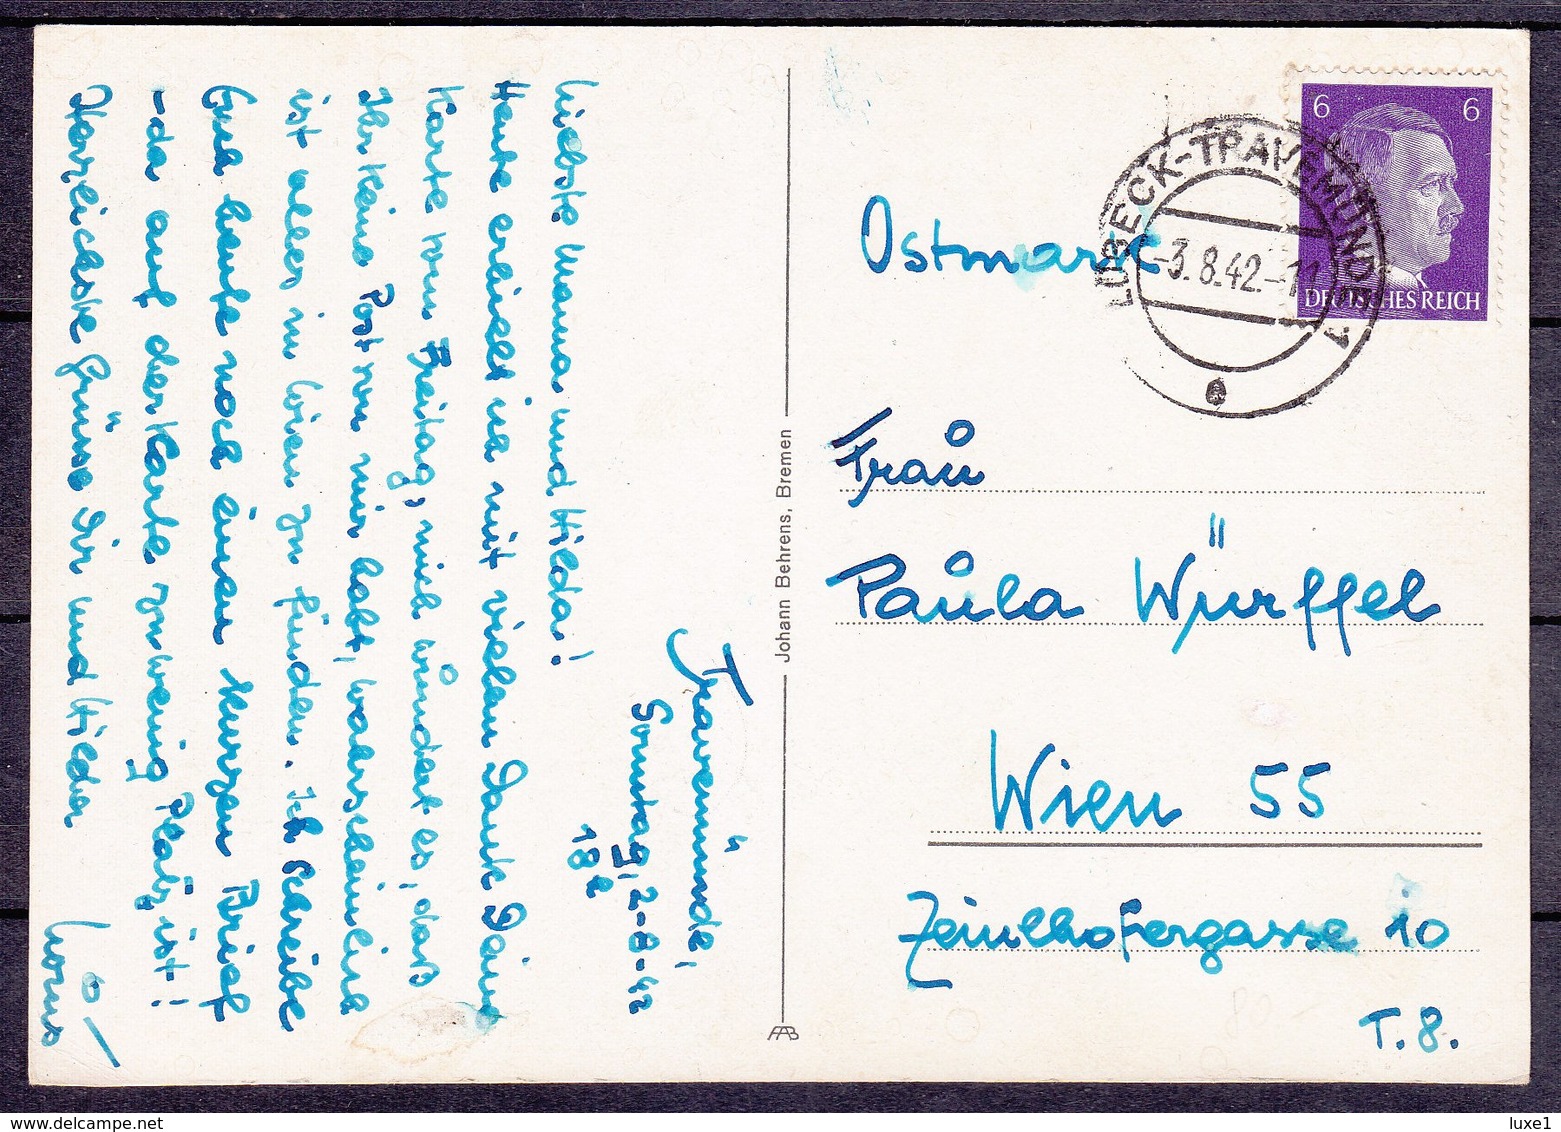 Travemünde,
Sonntag, 2-8-42
18h
Liebste Mama und Hilda!
Heute erhielt ich mit vielen Dank Deine
Karte vom Freitag, mich wundert es, daß
Ihr keine Post von mir habt, wahrscheinlich
ist alles in Wien zu finden. Ich schreibe
Euch heute noch einen kurzen Brief
-da auf der Karte zu wenig Platz ist!
Herzlichste Grüsse Dir und Hilda
Johann Behrens, Bremen
6 6
DEUTSCHES REICH
LÜBECK-TRAVEMÜNDE 1
-3.8.42.-11
e
Ostmark
Frau
Paula Würffel
Wien 55
Zeinlhofergasse 10
T.8.
luxe1
delcampe.net